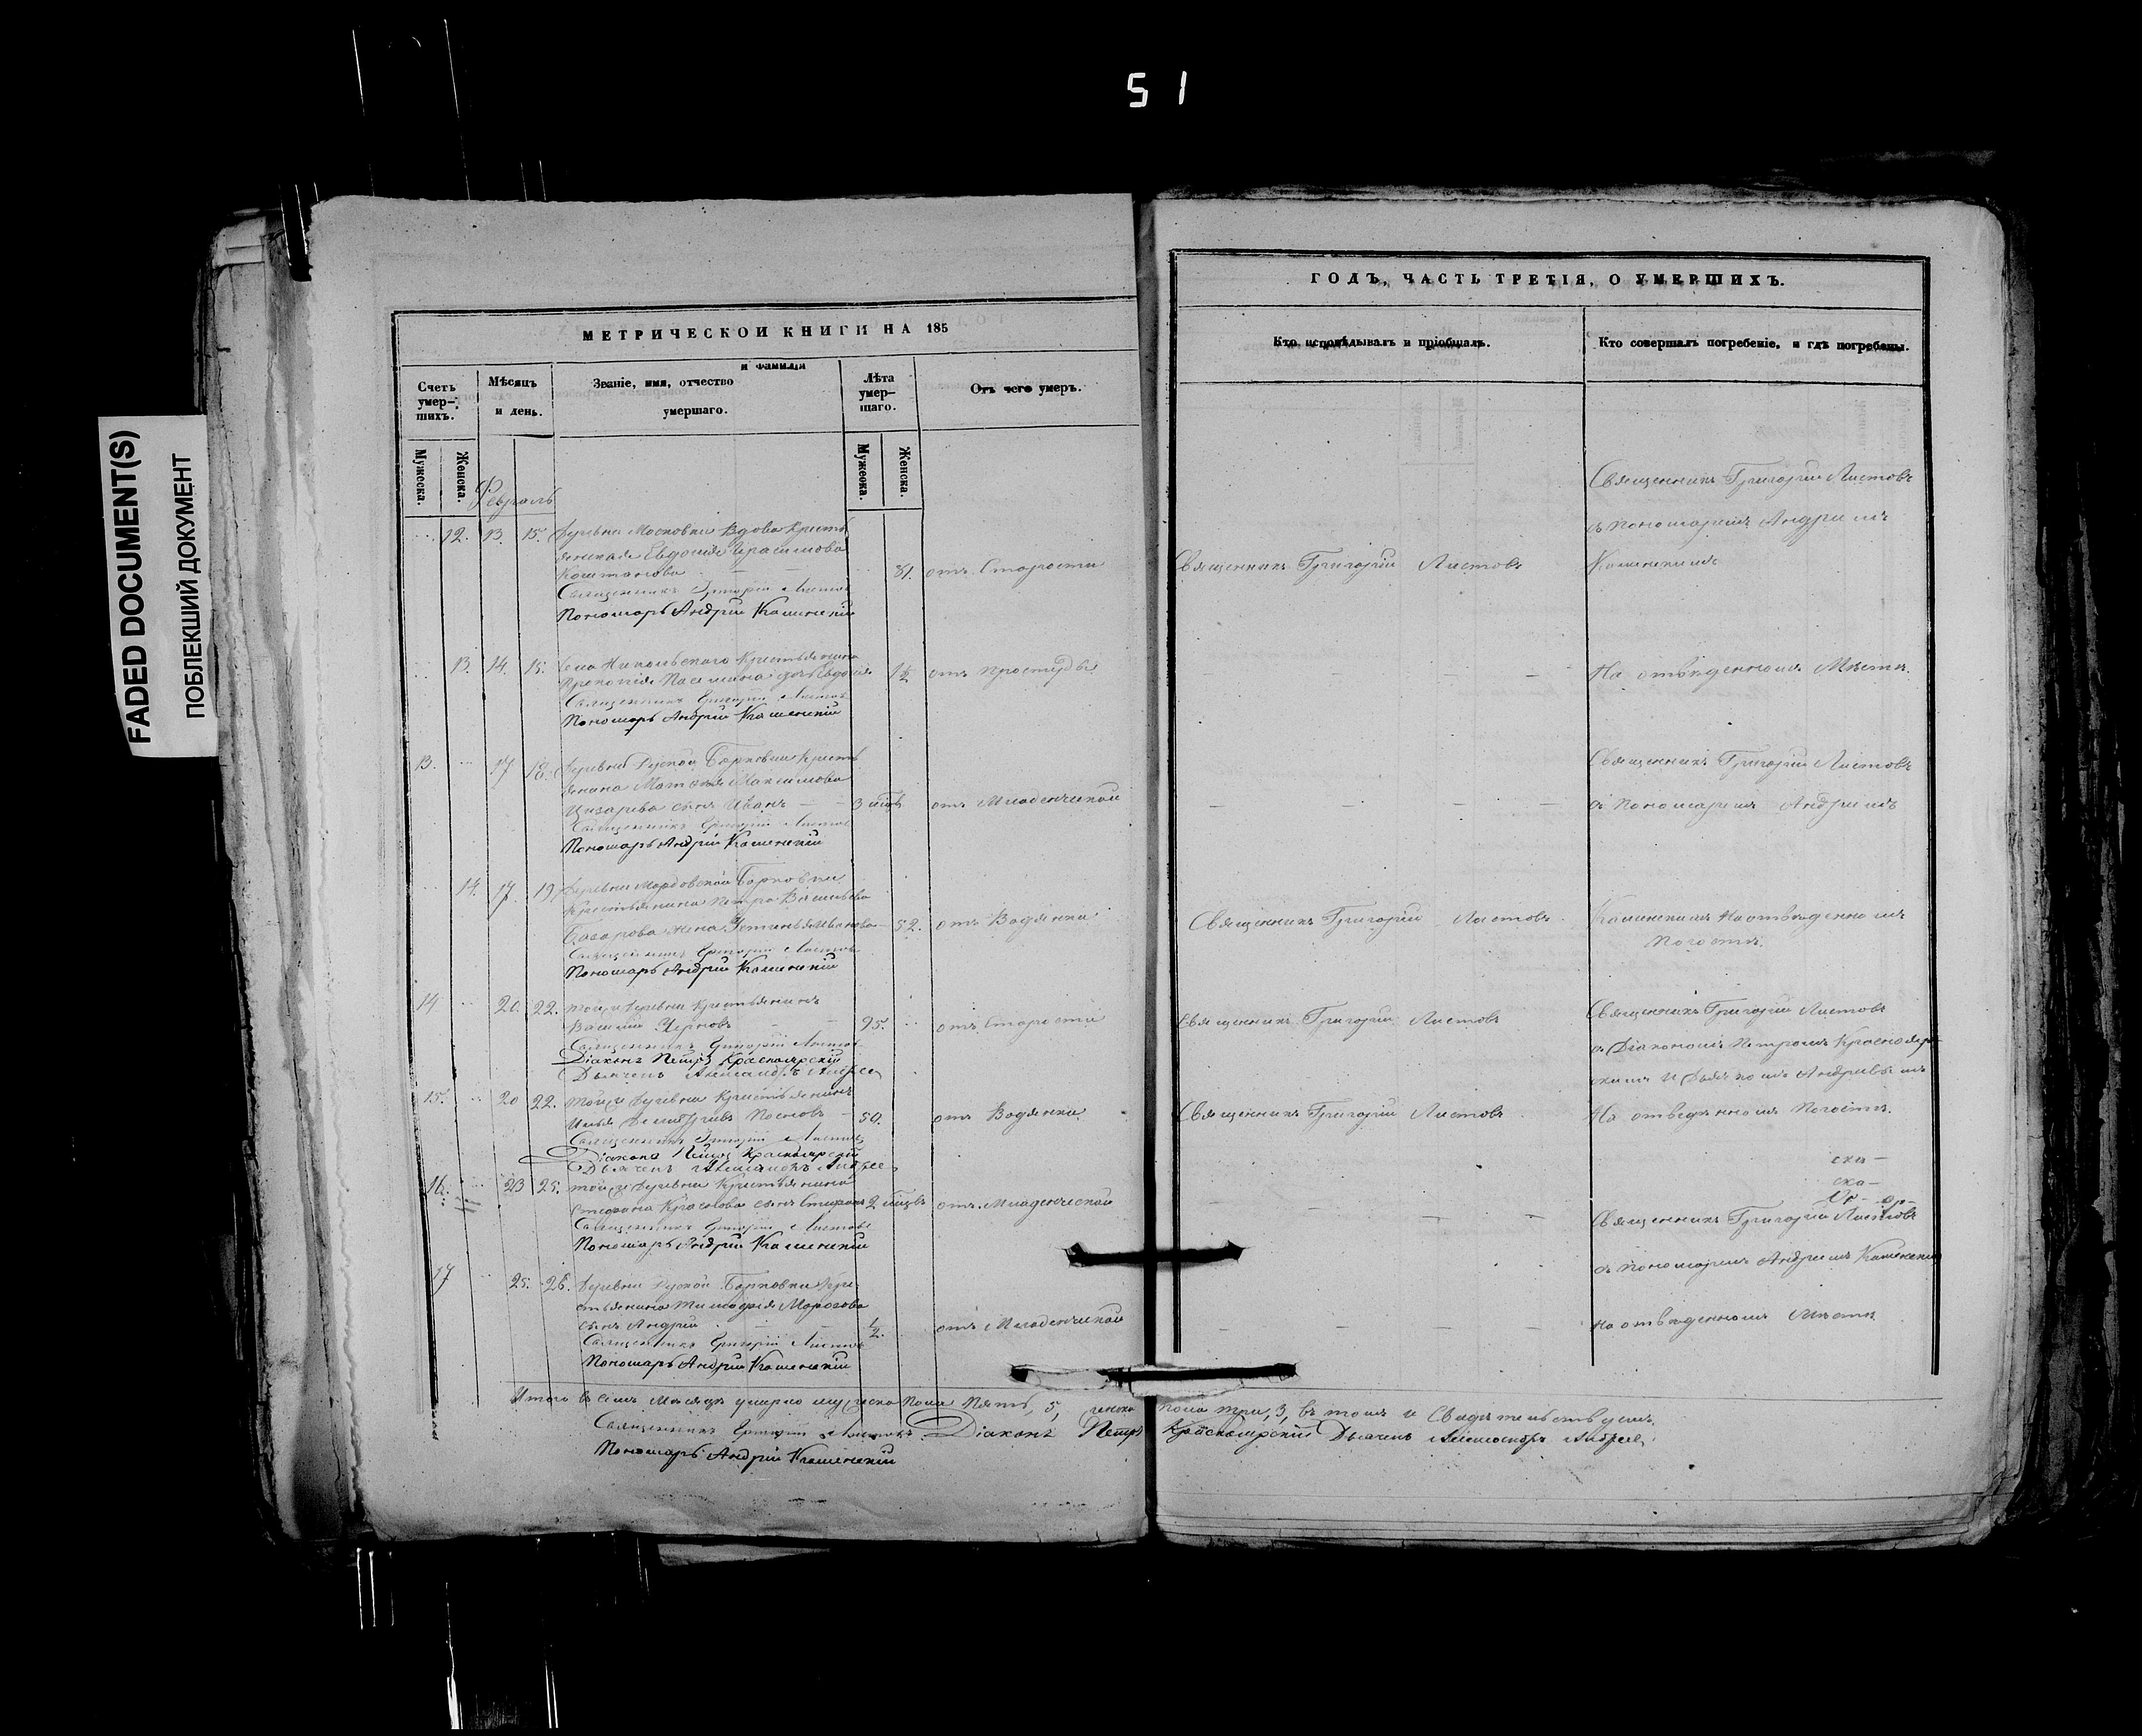 51
FADED DOCUMENT(S)
ПОБЛЕКШИЙ ДОКУМЕНТ
МЕТРИЧЕСКОЙ КНИГИ НА 185
Счетъ умер-шихъ.
Мѣсяцъ и день.
Званіе, имя, отчество и фамилія умершаго.
Лѣта умер-шаго.
Отъ чего умеръ.
Мужеска.
Женска.
Мужеска.
Женска.
Февраль
12. 13. 15. Деревни Московки вдова кресть
янская Евдокія Герасимова
81. отъ Старости
Священникъ Григорій Листовъ
Пономарь Андрей Каменскій
13. 14. 15. Села Никольскаго Крестьянина
Прокопія дочь Евдокія 1½ отъ простуды
Священникъ Григорій Листовъ
Пономарь Андрей Каменскій
13. 17 18. Деревни Руской Барковки кресть
янина Матвѣя Максимова
сынъ Иванъ 3 мѣцъ отъ Младенческой
Священникъ Григорій Листовъ
Пономарь Андрей Каменскій
14. 17. 19. Деревни Мордовской Барковки
Крестьянина Петра Васильева
жена Устинья Иванова 52. отъ Водянки
Священникъ Григорій Листовъ
Пономарь Андрей Каменскій
14 20. 22. той же деревни крестьянинъ
Василій Черновъ 95. отъ Старости
Священникъ Григорій Листовъ
Діаконъ Петръ Красноярскій
Дьячекъ Александръ Андреев
15. 20 22. той же деревни крестьянинъ
Илья Дмитріевъ 50. отъ Водянки
Священникъ Григорій Листовъ
Діаконъ Петръ Красноярскій
Дьячекъ Александръ Андреев
16. 23 25. той же деревни Крестьянина
Стефана сынъ 2 мѣцевъ отъ Младенческой
Священникъ Григорій Листовъ
Пономарь Андрей Каменскій
17 25. 26. Деревни Руской Барковки кре
стьянина Тимофея Морозова
сынъ Андрей ½. отъ Младенческой
Священникъ Григорій Листовъ
Пономарь Андрей Каменскій
Итого въ семъ Мѣсяцѣ умерло мужеска пола Пять, 5, женска
Священникъ Григорій Листовъ Діаконъ Петръ
Пономарь Андрей Каменскій
ГОДЪ, ЧАСТЬ ТРЕТІЯ, О УМЕРШИХЪ.
Кто исповѣдывалъ и пріобщалъ.
Кто совершалъ погребеніе, и гдѣ погребены.
Священникъ Григорій Листовъ
съ пономаремъ Андреемъ
Священникъ Григорій Листовъ
Каменскимъ
На отвѣденномъ Мѣстѣ.
Священникъ Григорій Листовъ
съ Пономаремъ Андреемъ
Священникъ Григорій Листовъ
Каменскимъ На отвѣденномъ
Погостѣ.
Священникъ Григорій Листовъ
Священникъ Григорій Листовъ
съ Діакономъ Петромъ Краснояр
скимъ и Дьячкомъ Андреевымъ
Священникъ Григорій Листовъ
На отведенномъ Погостѣ.
Священникъ Григорій Листовъ
съ пономаремъ Андреемъ Каменским
на отвѣденномъ Мѣстѣ
пола три, 3, въ томъ и Свидѣтельствуемъ.
Красноярскій Дьячекъ Александръ Андреев